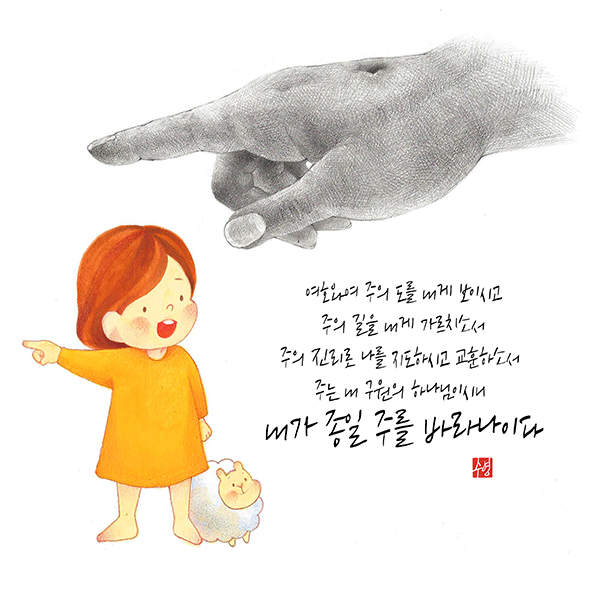 여호와여 주의 도를 내게 보이시고
주의 길을 내게 가르치소서
주의 진리로 나를 지도하시고 교훈하소서
주는 내 구원의 하나님이시니
내가 종일 주를 바라나이다
수영